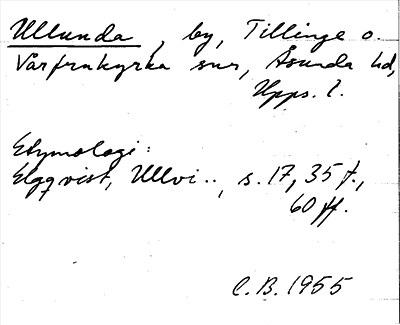 Ullunda, by, Tillinge o.
Vårfrukyrka snr, Åsunda hd,
Upps. l.
Etymologi:
Elgqvist, Ullvi.., s. 17, 35 f.,
60 ff.
C.B. 1955